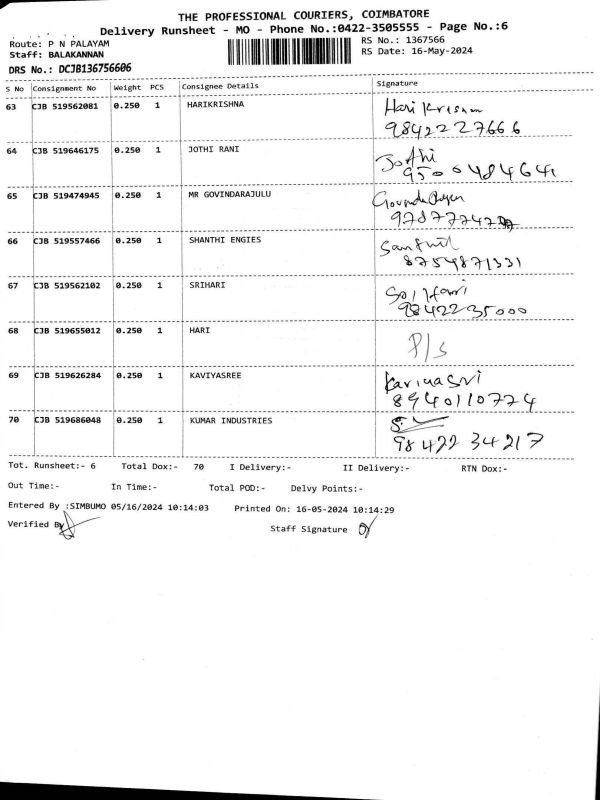 THE PROFESSIONAL COURIERS, COIMBATORE
Delivery Runsheet - MO - Phone No.:0422-3505555 - Page No.:6
Route: P N PALAYAM
RS No.: 1367566
Staff: BALAKANNAN
RS Date: 16-May-2024
DRS No.: DCJB136756606
S No Consignment No Weight PCS Consignee Details Signature
63 CJB 519562081 0.250 1 HARIKRISHNA Hari Krishna
9842227666
64 CJB 519646175 0.250 1 JOTHI RANI Jothi
9500484641
65 CJB 519474945 0.250 1 MR GOVINDARAJULU
97877747
66 CJB 519557466 0.250 1 SHANTHI ENGIES
8754871331
67 CJB 519562102 0.250 1 SRIHARI Sri Hari
9842235000
68 CJB 519655012 0.250 1 HARI P/s
69 CJB 519626284 0.250 1 KAVIYASREE KaviyaSri
8940110774
70 CJB 519686048 0.250 1 KUMAR INDUSTRIES
98422 34217
Tot. Runsheet:- 6 Total Dox:- 70 I Delivery:- II Delivery:- RTN Dox:-
Out Time:- In Time:- Total POD:- Delvy Points:-
Entered By :SIMBUMO 05/16/2024 10:14:03 Printed On: 16-05-2024 10:14:29
Verified By
Staff Signature